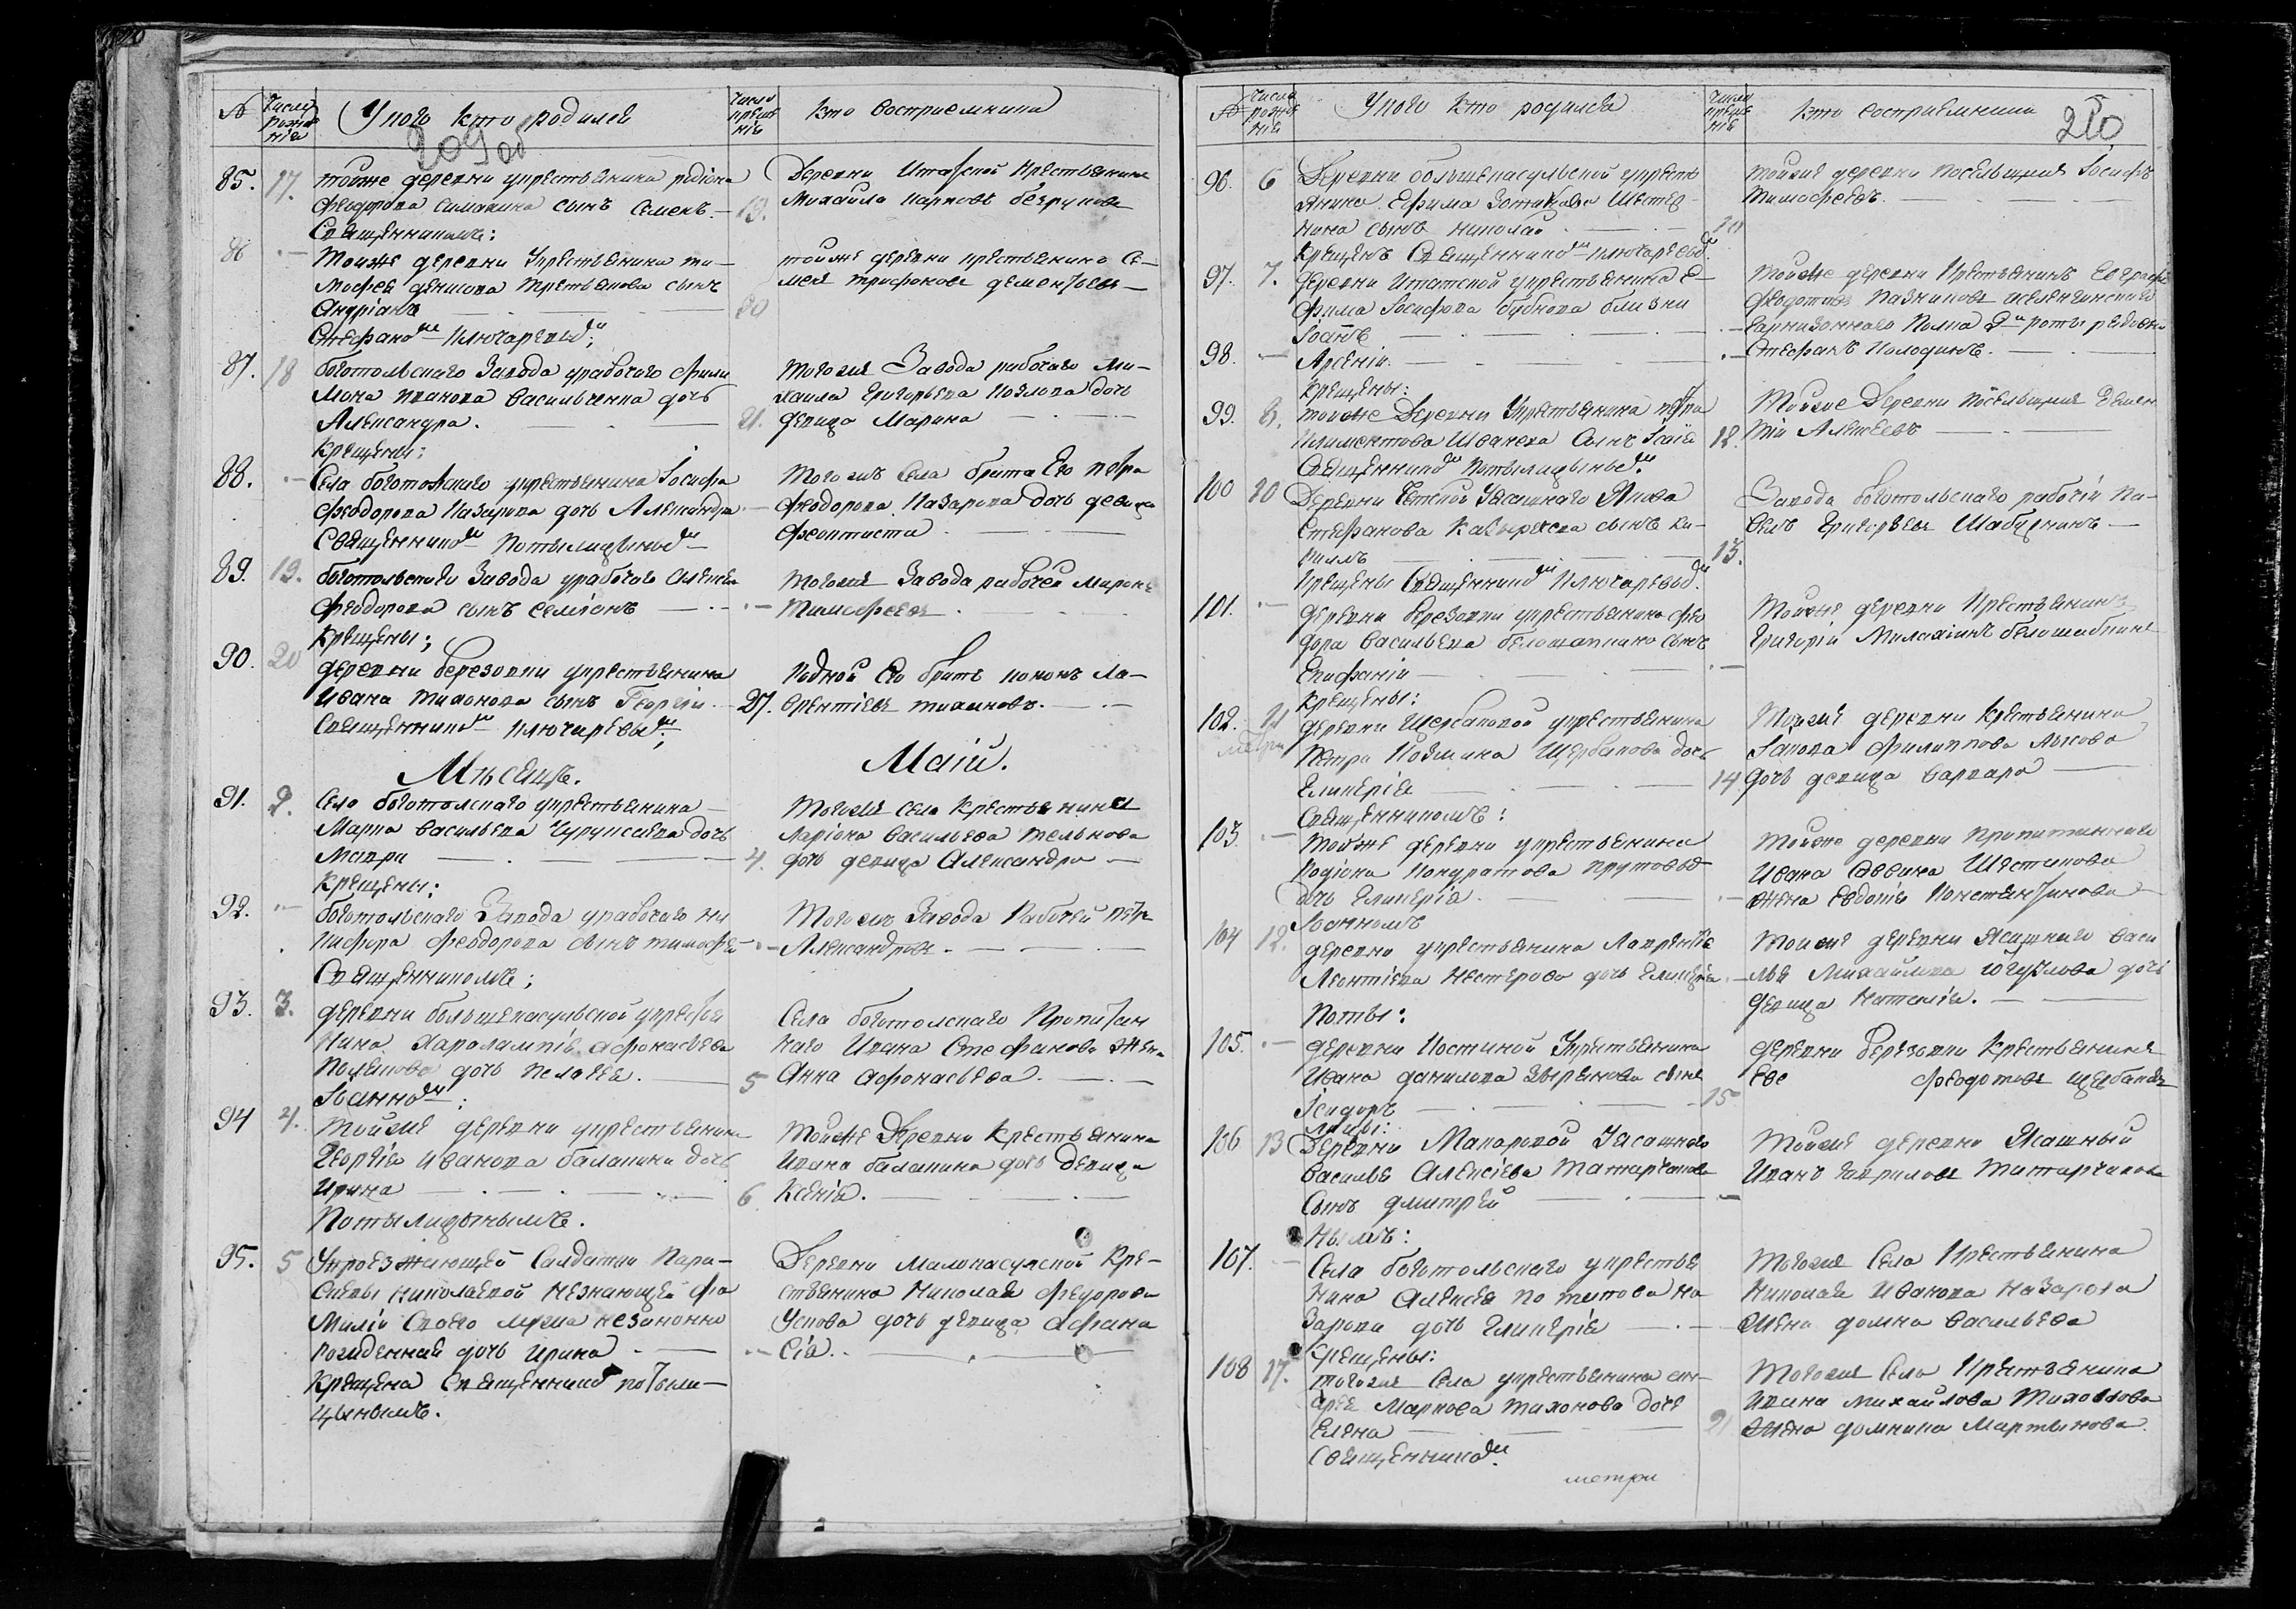 №
Число рожденія
У кого кто родился
Число крещенія
Кто восприемники
209 об
85. 17. тойже деревни укрестьянина родіона
Феодорова симакина сынъ Семенъ. — 19.
Священникомъ:
Деревни Итатской Крестьянинъ
Михайло карповъ безруковъ
86 — Тойже деревни Укрестьянина ти-
мофея денисова третьякова сынъ
Андріанъ — 20
Стефаномъ Ключаревымъ;
тойже деревни крестьянинъ Се-
менъ трифоновъ дементьевъ —
87. 18 боготольскаго Завода урабочаго фили
мона иванова васильченка дочь
Александра. — 21.
Крещены:
тогоже Завода рабочаго Ми-
хаила григорьева козлова дочь
девица Марина
88. — Села боготольскаго укрестьянина Іосифа
феодорова Назарова дочь Александра —
Священникомъ Потылицынымъ
Тогожъ Села брата Его петра
феодорова Назарова дочь девица
феоктиста
89. 19. боготольскаго Завода урабочаго Алексея
феодорова сынъ семіонъ —
Крещены;
тогоже Завода рабочей Миронъ
Тимофеевъ
90. 20 деревни березовки укрестьянина
Ивана тихонова сынъ Георгій — 27.
Священникомъ Ключаревымъ;
Родной Его братъ кононъ ла-
врентіевъ тихоновъ.
Месяцъ.
Маій.
91. 2. Села боготолскаго укрестьянина
Марка васильева Чурупсаева дочь
Мавра — 4.
Крещены:
Тогоже села Крестьянина
Ларіона васильева тельнова
дочь девица Александра —
92. — боготольскаго Завода урабочаго ни
кифора феодорова сынъ тимофей —
Священникомъ;
Тогожъ Завода Рабочей Петръ
Александровъ.
93. 3. деревни большекасульской укрестья
нина Харалампія афонасьева
Полякова дочь пелагея. — 5
Іоанномъ:
Села боготолскаго Пропитан
наго Ивана Стефанова жена
Анна афонасьева.
94 4. Тойже деревни укрестьянина
Георгія Иванова балакина дочь
Ирина — 6
Потылицынымъ.
Тойже Деревни Крестьянина
Ивана балакина дочь девица
Ксенія.
95. 5 Упроезжающей Салдатки Пара-
скевы николаевой незнающей фа
миліи Своего мужа незаконно
рожденная дочь Ирина —
Крещена Священникомъ потыли-
цынымъ.
Деревни Малокасулской Кре-
стьянина Николая Федорова
Ускова дочь девица Афана
Сія.
№
Число рожденія
У кого кто родился
Число крещенія
Кто восприемники
210
96. 6 Деревни большекасульской укресть
янина Ефима Зотикова Шестер-
нина сынъ николай
крещенъ Священникомъ ключаревымъ
тойже деревни посельщикъ Іосифъ
Тимофеевъ.
97. 7. деревни Итатской укрестьянина Е-
фима Іосифова бубнова близни
Іоаннъ —
Тойже деревни Крестьянинъ Евграфъ
феодотовъ
гарнизоннаго Полка 2й роты рядовой
98. — Арсеній. —
крещены:
Стефанъ Колодинъ.
99. 8. тойже Деревни Укрестьянина петра
Климентова Шванева Сынъ Исаія 12.
Священникомъ Потылицынымъ
Тойже Деревни посельщикъ Демен
тій Алексеевъ
100 10 Деревни Четской Уясашнаго Якова
Стефанова сынъ ки-
рилъ — 13.
крещены Священникомъ Ключаревымъ
Завода боготольскаго рабочій па-
велъ Григорьевъ Шабуркинъ —
101. — деревни березовки укрестьянина фео
дора васильева белошапкина сынъ
Епифаній —
Крещены:
Тойже деревни Крестьянинъ
Григорій Малахіинъ белошабкинъ
102. 11 деревни Щербаковой укрестьянина
Петра Козмина Щербакова дочь
Гликерія — 14
Священникомъ:
Тойже деревни Крестьянина
Іакова филиппова лыкова
дочь девица варвара —
103. — тойже деревни укрестьянина
Родіона Кондратова крутова
дочь Гликерія.
Іоанномъ
Тойже деревни пропитаннаго
Ивана Саввина Шестакова
жена Евдокія Константинова
104 12. деревни укрестьянина Лаврентія
Леонтіева нестерова дочь Гликерія —
Поты:
Тойже деревни Ясашнаго васи
лья Михайлова дочь
девица Наталія.
105. — деревни Костиной Укрестьянина
Ивана данилова Зырянова сынъ
Ісидоръ — 15
лицы:
деревни березовки Крестьянинъ
Еве феодотовъ щербаковъ
106 13 Деревни Макаровой Уясашнаго
василья Алексіева Татарчакова
Сынъ дмитрей —
нымъ:
Тойже деревни Ясашный
Иванъ гавриловъ Татарчаковъ
107. — Села боготольскаго укрестья
нина Алексея по титова на
зарова дочь Гликерія —
Крещены:
Тогоже Села Крестьянина
Николая Иванова Назарова
жена домна васильева
108 17. тогоже Села укрестьянина ан-
дрея Маркова тихонова дочь
Елена — 21
Священникомъ.
Тогоже Села Крестьянина
Ивана михайлова Тихонова
жена домника Мартынова.
метри